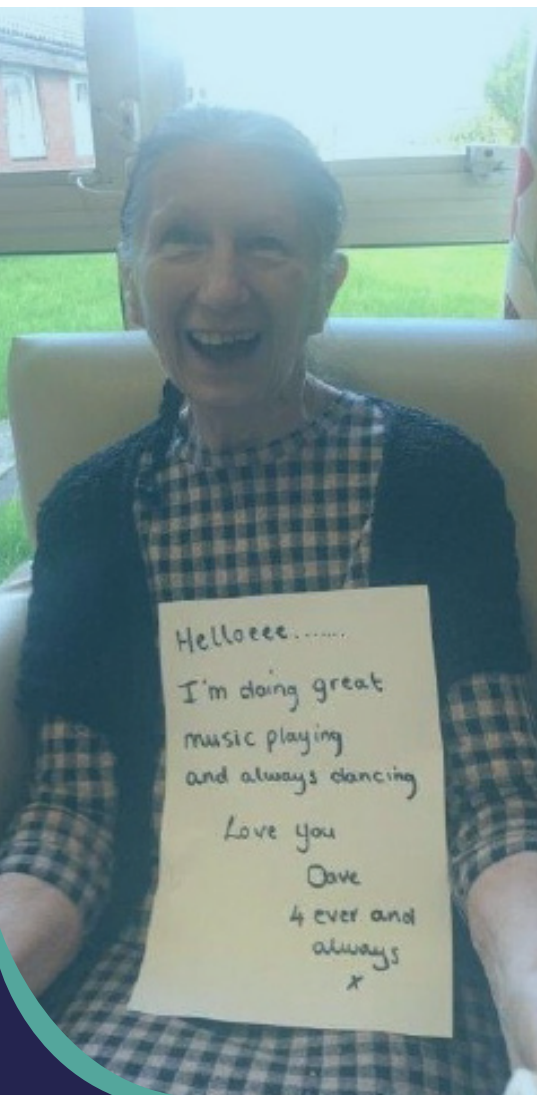 Helloeee.......
I'm doing great
music playing
and always dancing
Love you
Dave
4 ever and
always
x